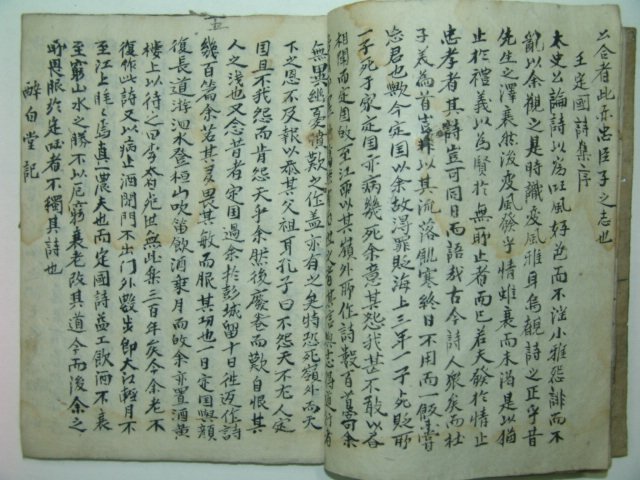 公合者此亦忠臣子之志也
王定國詩集序
太史公論詩以為國風好色而不淫小雅怨誹而不
亂以余觀之是時識變風雅耳烏覩詩之正乎昔
先生之澤衰然後變風發乎情雖衰而未渴是以猶
止於禮義以為賢於無所止者而已若夫發於情止
忠孝者其詩豈可同日而語哉古今詩人眾矣而杜
子義為首豈非以其流落飢寒終日不用而一飯未嘗
忘君也歟今定國以余故得罪貶海上三年一子死貶所
一子死于家定國亦病幾死余意其怨我甚不敢以書
相聞而定國至江西以其嶺外所作詩數百首寄余
五
無異幽憂憤歎之作蓋亦有之矣特恐死嶺外而天
下之恩不及報以忝其父祖耳孔子曰不怨天不尤人定
國且不我怨而肯怨天乎余然後廢卷而歎自恨其
人之淺也又念昔者定國過余於彭城留十日往返作詩
幾百篇余苦其多畏其敏而服其功也一日定國與顏
復長道游泗水登桓山吹笛飲酒乘月而敀余亦置酒黃
樓上以待之曰李太白死世無此樂三百年矣今余老不
復作此詩又以病止酒閉門不出門外數步即大江經月不
至江上眊々焉真一農夫也而定國詩益工飲酒不衰
至窮山水之勝不以厄窮衰老改其道今而後余之
所畏服於定國者不獨其詩也
醉白堂記